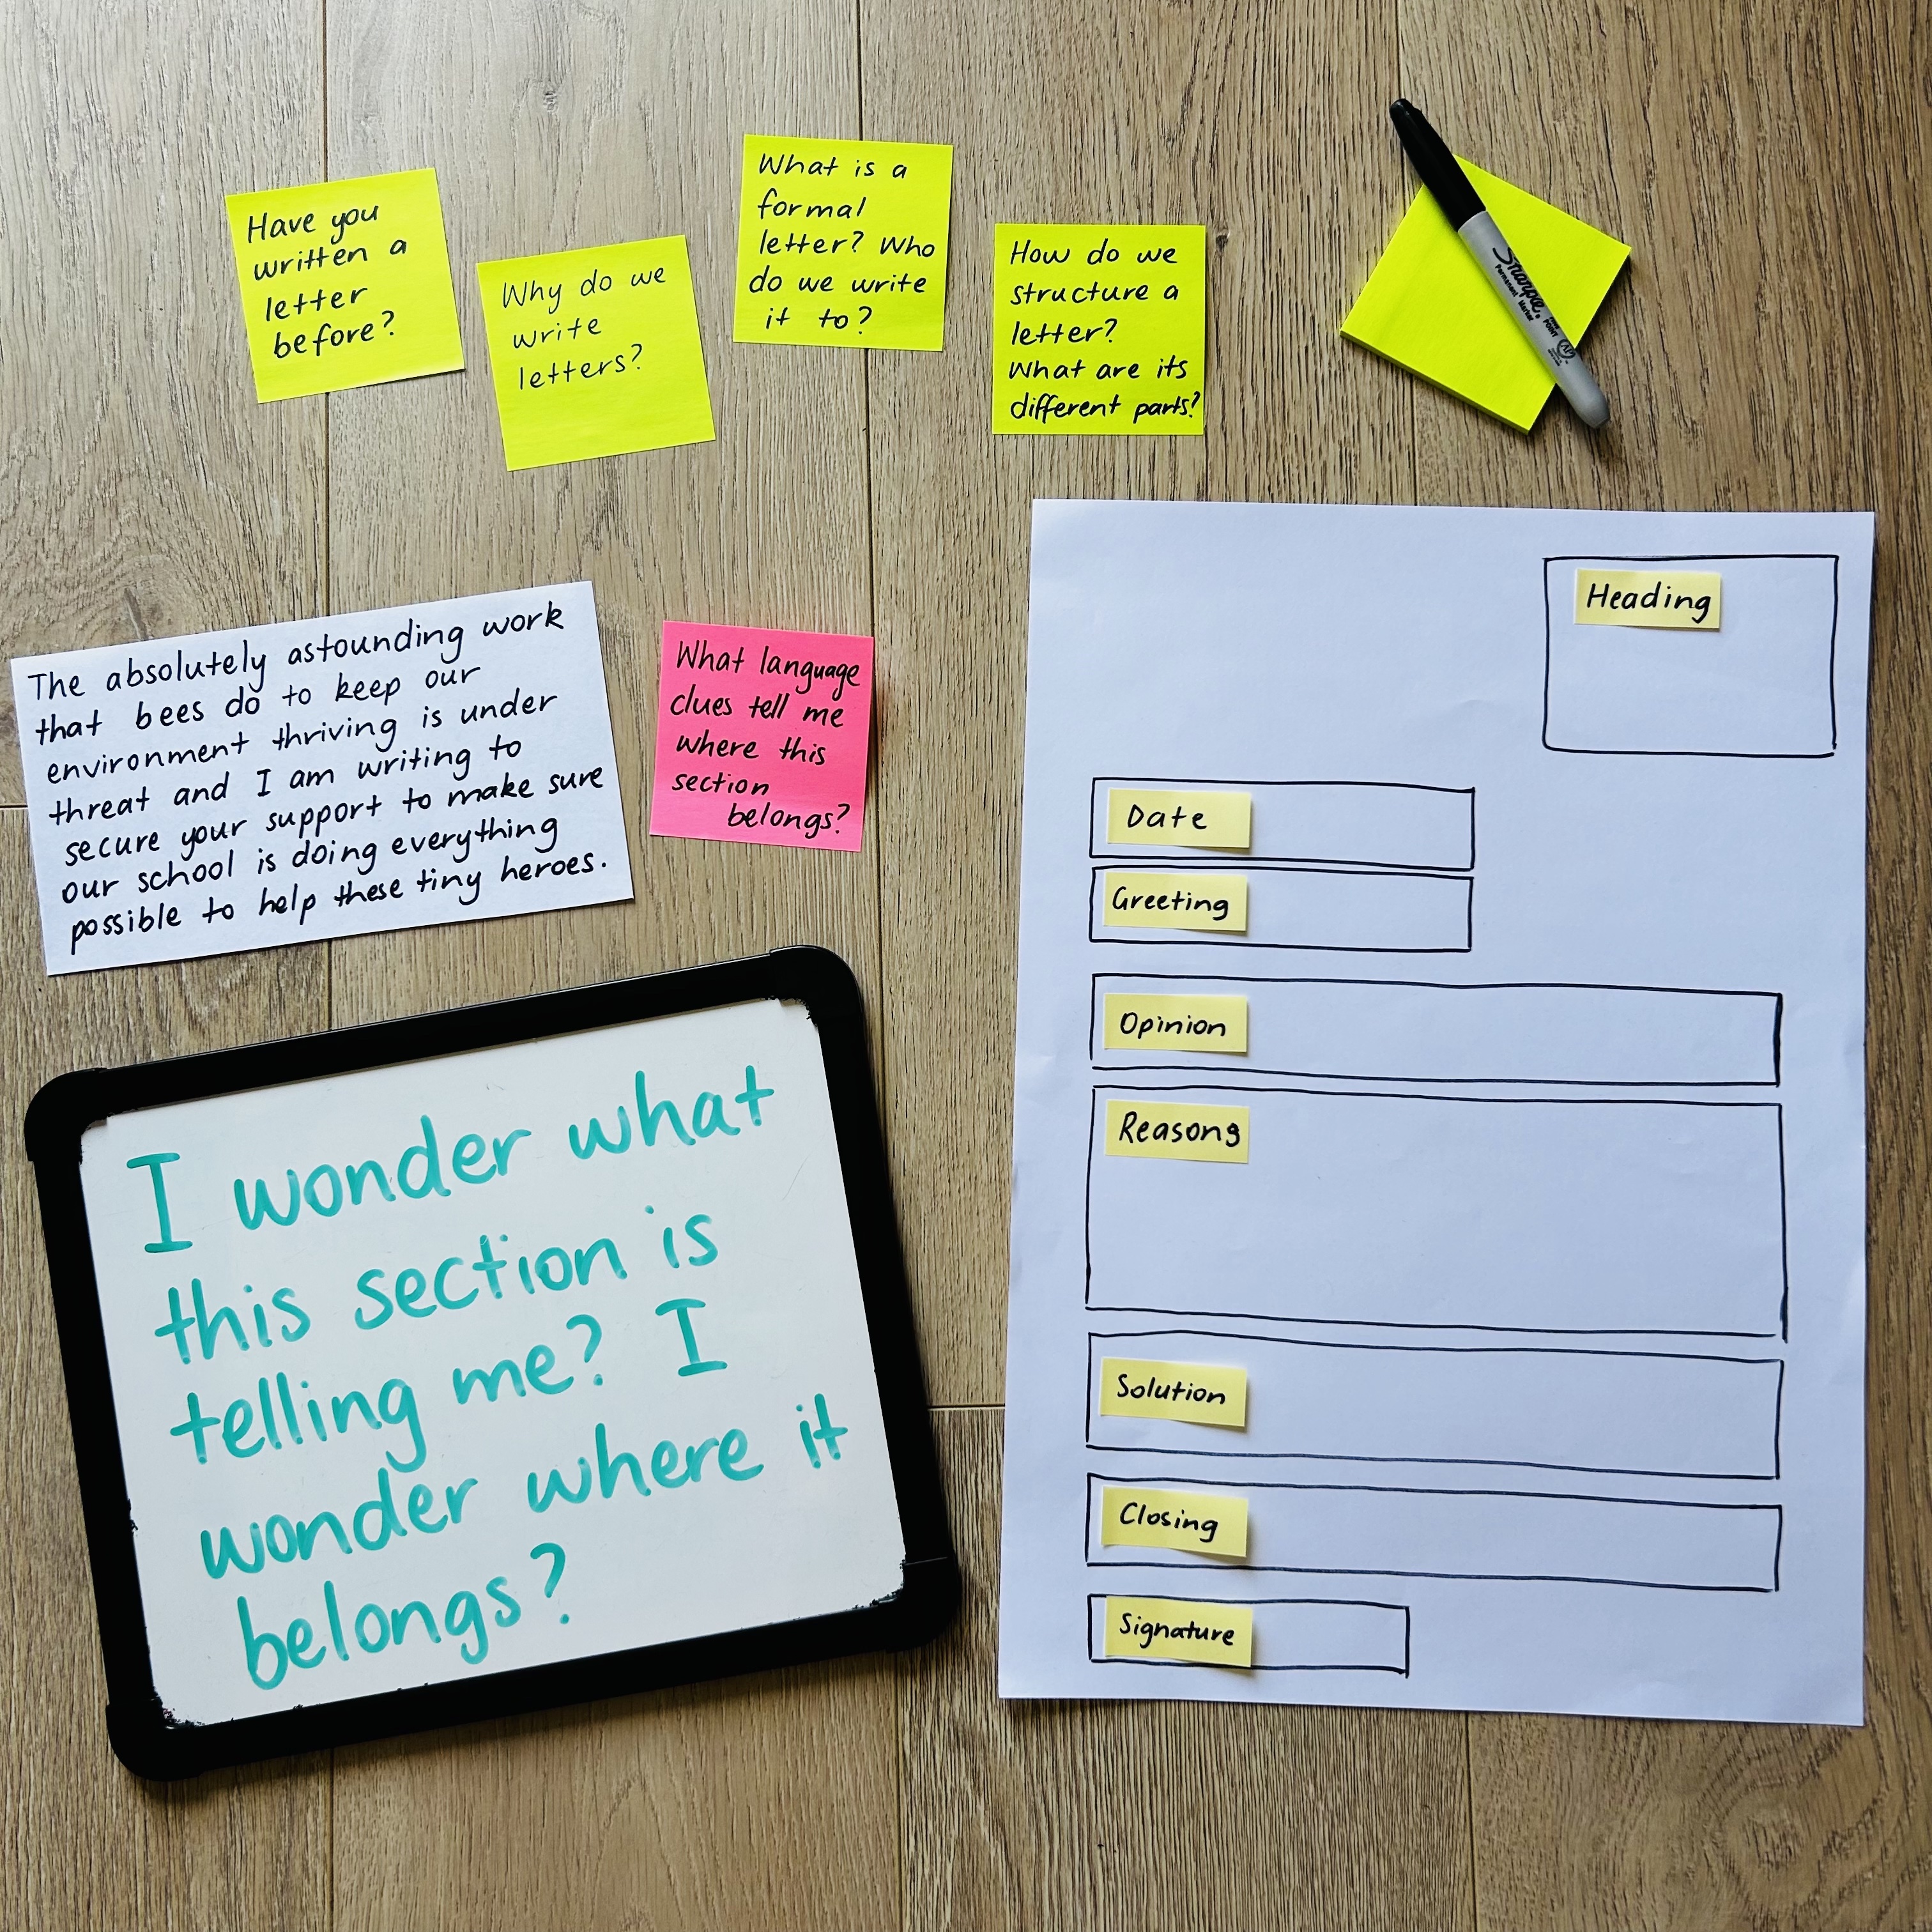 Have you
written a
letter
before?
Why do we
write
letters?
What is a
formal
letter? Who
do we write
it to?
How do we
structure a
letter?
What are its
different parts?
Sharpie.
Permanent Marker
FINE
POINT
AP
The absolutely astounding work
that bees do to keep our
environment thriving is under
threat and I am writing to
secure your support to make sure
our school is doing everything
possible to help these tiny heroes.
What language
clues tell me
where this
section
belongs?
Heading
Date
Greeting
Opinion
Reasons
Solution
Closing
Signature
I wonder what
this section is
telling me? I
wonder where it
belongs?